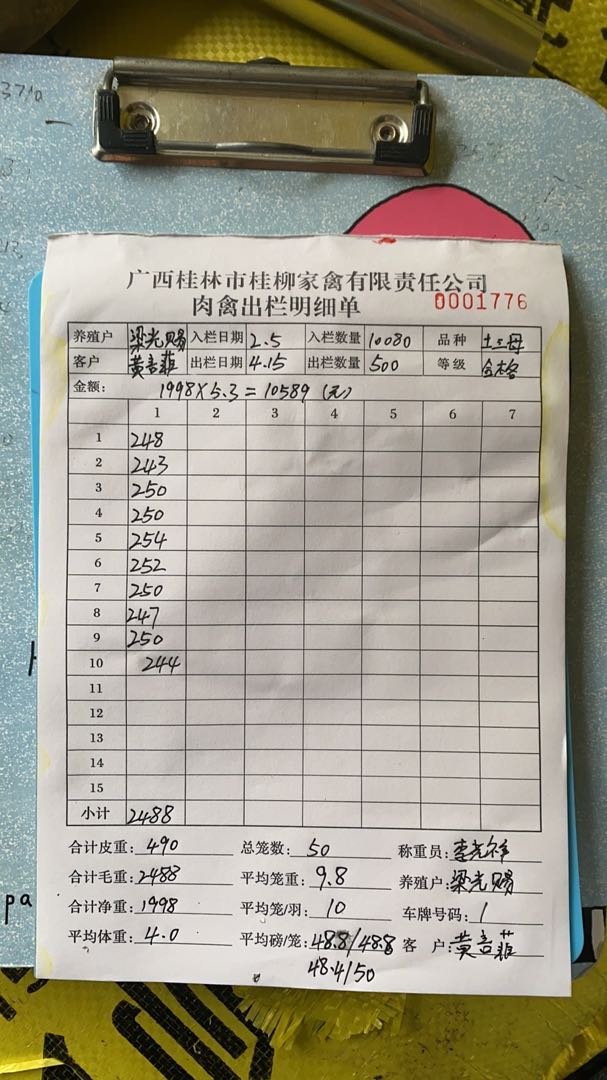 广西桂林市桂柳家禽有限责任公司
肉禽出栏明细单 0001776
养殖户 梁光赐 入栏日期 2.5 入栏数量 10080 品种 土二母
客户 黄吉菲 出栏日期 4.15 出栏数量 500 等级 合格
金额: 1998×5.3=10589 (元)
1 2 3 4 5 6 7
1 248
2 243
3 250
4 250
5 254
6 252
7 250
8 247
9 250
10 244
11
12
13
14
15
小计 2488
合计皮重: 490 总笼数: 50 称重员: 李光祥
合计毛重: 2488 平均笼重: 9.8 养殖户: 梁光赐
合计净重: 1998 平均笼/羽: 10 车牌号码: 1
平均体重: 4.0 平均磅/笼: 48.8/48.8 客 户: 黄吉菲
48.4/50
pa